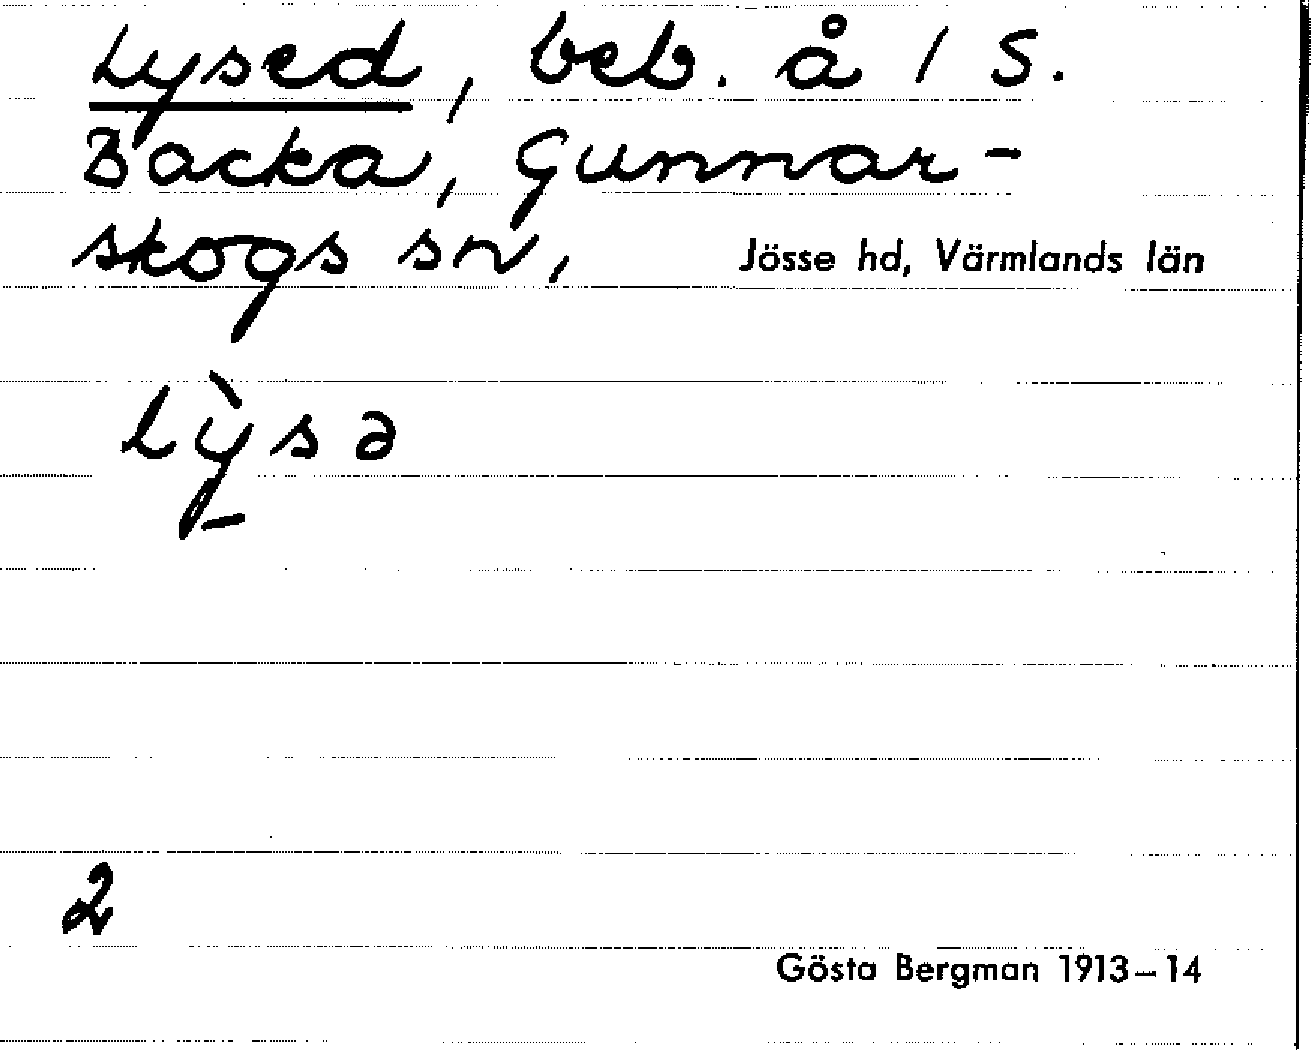 Lysed, beb. å 1 S.
Backa, Gunnar-
skogs sn, Jösse hd, Värmlands län
Lỳ̱sə
2
Gösta Bergman 1913–14